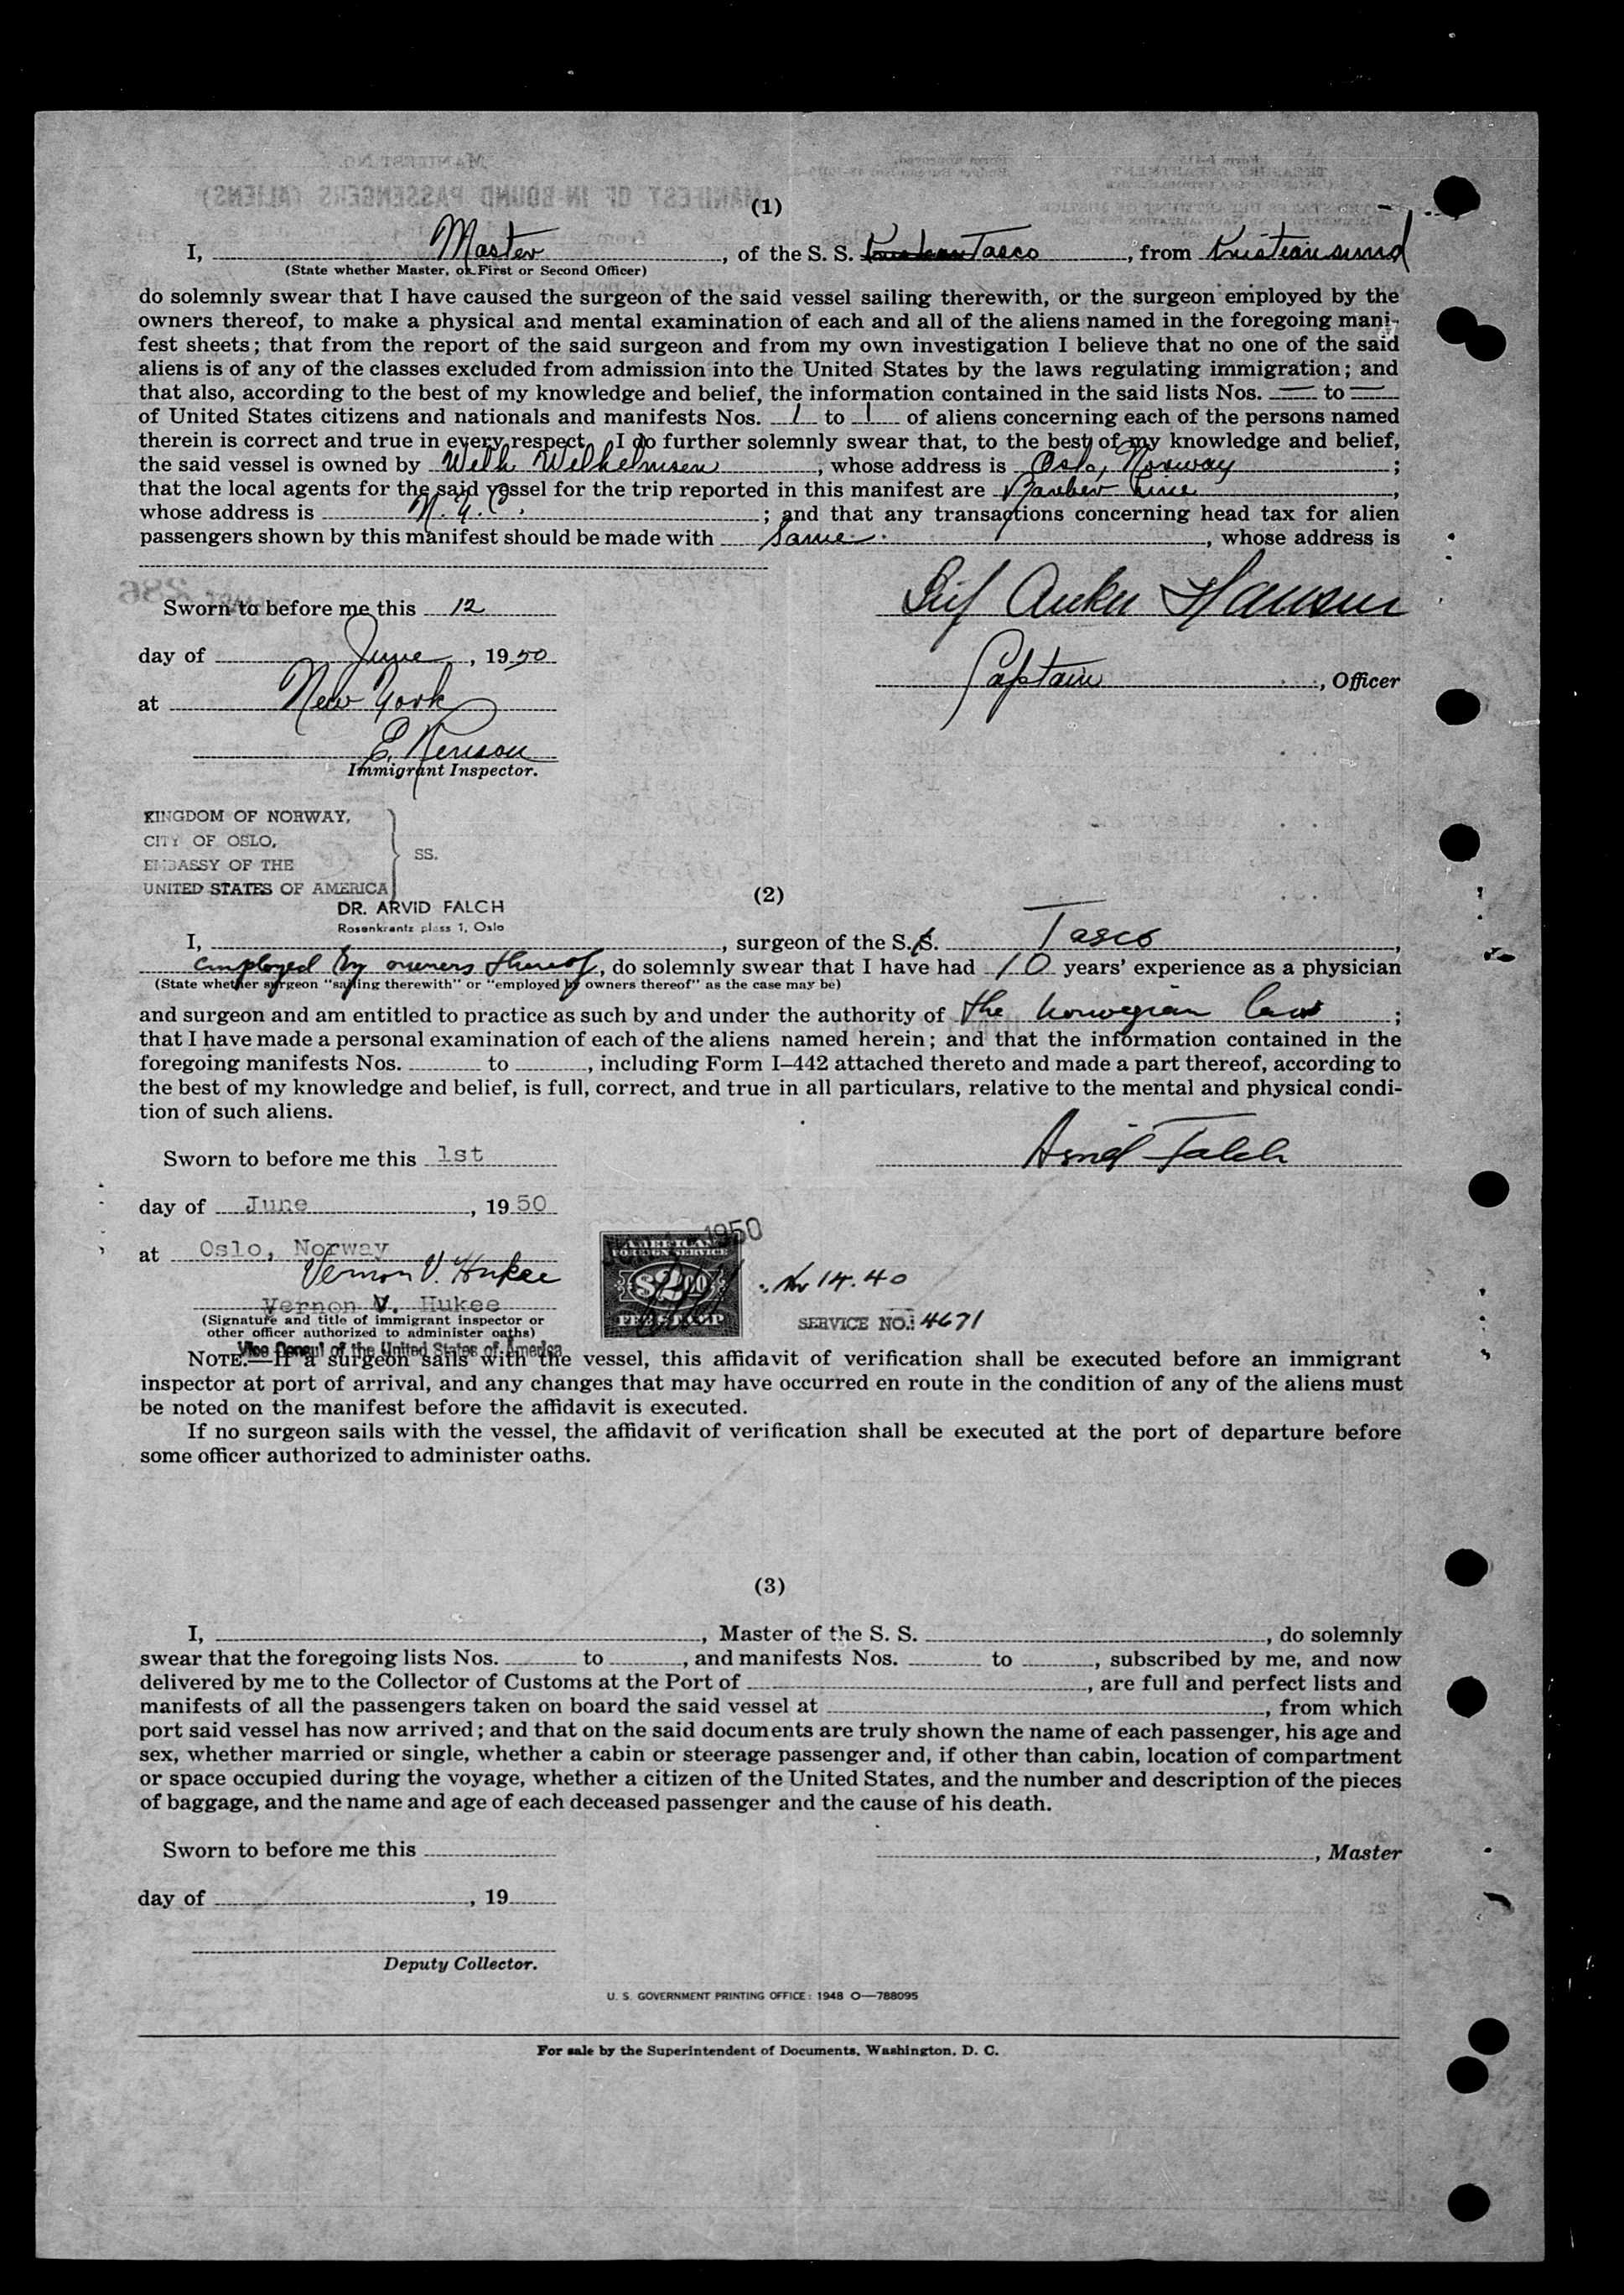 (1)
I, Master, of the S. S. Tasco, from Kristiansund
(State whether Master, or First or Second Officer)
do solemnly swear that I have caused the surgeon of the said vessel sailing therewith, or the surgeon employed by the
owners thereof, to make a physical and mental examination of each and all of the aliens named in the foregoing mani-
fest sheets; that from the report of the said surgeon and from my own investigation I believe that no one of the said
aliens is of any of the classes excluded from admission into the United States by the laws regulating immigration; and
that also, according to the best of my knowledge and belief, the information contained in the said lists Nos. — to —
of United States citizens and nationals and manifests Nos. 1 to 1 of aliens concerning each of the persons named
therein is correct and true in every respect. I do further solemnly swear that, to the best of my knowledge and belief,
the said vessel is owned by Wilh Wilhelmsen, whose address is Oslo, Norway;
that the local agents for the said vessel for the trip reported in this manifest are Barber Line,
whose address is N.Y.C.; and that any transactions concerning head tax for alien
passengers shown by this manifest should be made with same., whose address is
Sworn to before me this 12
Leif Anker Hansen
day of June, 1950
Captain, Officer
at New York
E. Kenison
Immigrant Inspector.
KINGDOM OF NORWAY,
CITY OF OSLO,
EMBASSY OF THE
UNITED STATES OF AMERICA
SS.
(2)
DR. ARVID FALCH
Rosenkrantz plass 1, Oslo
I, , surgeon of the S.S. Tasco,
employed by owners thereof, do solemnly swear that I have had 10 years' experience as a physician
(State whether surgeon "sailing therewith" or "employed by owners thereof" as the case may be)
and surgeon and am entitled to practice as such by and under the authority of the norwegian law;
that I have made a personal examination of each of the aliens named herein; and that the information contained in the
foregoing manifests Nos. to , including Form I–442 attached thereto and made a part thereof, according to
the best of my knowledge and belief, is full, correct, and true in all particulars, relative to the mental and physical condi-
tion of such aliens.
Sworn to before me this 1st
Arvid Falch
day of June, 1950
at Oslo, Norway
Vernon V. Hukee
Vernon V. Hukee
(Signature and title of immigrant inspector or
other officer authorized to administer oaths)
Vice Consul of the United States of America
1950
AMERICAN
FOREIGN SERVICE
$2.00
FEE STAMP
14.40
SERVICE NO. 4671
NOTE.—If a surgeon sails with the vessel, this affidavit of verification shall be executed before an immigrant
inspector at port of arrival, and any changes that may have occurred en route in the condition of any of the aliens must
be noted on the manifest before the affidavit is executed.
If no surgeon sails with the vessel, the affidavit of verification shall be executed at the port of departure before
some officer authorized to administer oaths.
(3)
I, , Master of the S. S. , do solemnly
swear that the foregoing lists Nos. to , and manifests Nos. to , subscribed by me, and now
delivered by me to the Collector of Customs at the Port of , are full and perfect lists and
manifests of all the passengers taken on board the said vessel at , from which
port said vessel has now arrived; and that on the said documents are truly shown the name of each passenger, his age and
sex, whether married or single, whether a cabin or steerage passenger and, if other than cabin, location of compartment
or space occupied during the voyage, whether a citizen of the United States, and the number and description of the pieces
of baggage, and the name and age of each deceased passenger and the cause of his death.
Sworn to before me this
, Master
day of , 19
Deputy Collector.
U. S. GOVERNMENT PRINTING OFFICE: 1948 O—788095
For sale by the Superintendent of Documents, Washington, D. C.